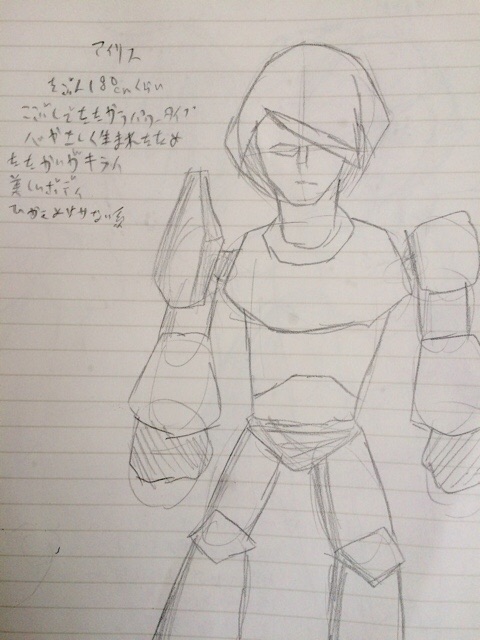 アイリス
たぶん180cmくらい
こぶしでたたかうパワータイプ
心やさしく生まれたため
たたかいがキライ
美しいボディ
ひかえめけない系